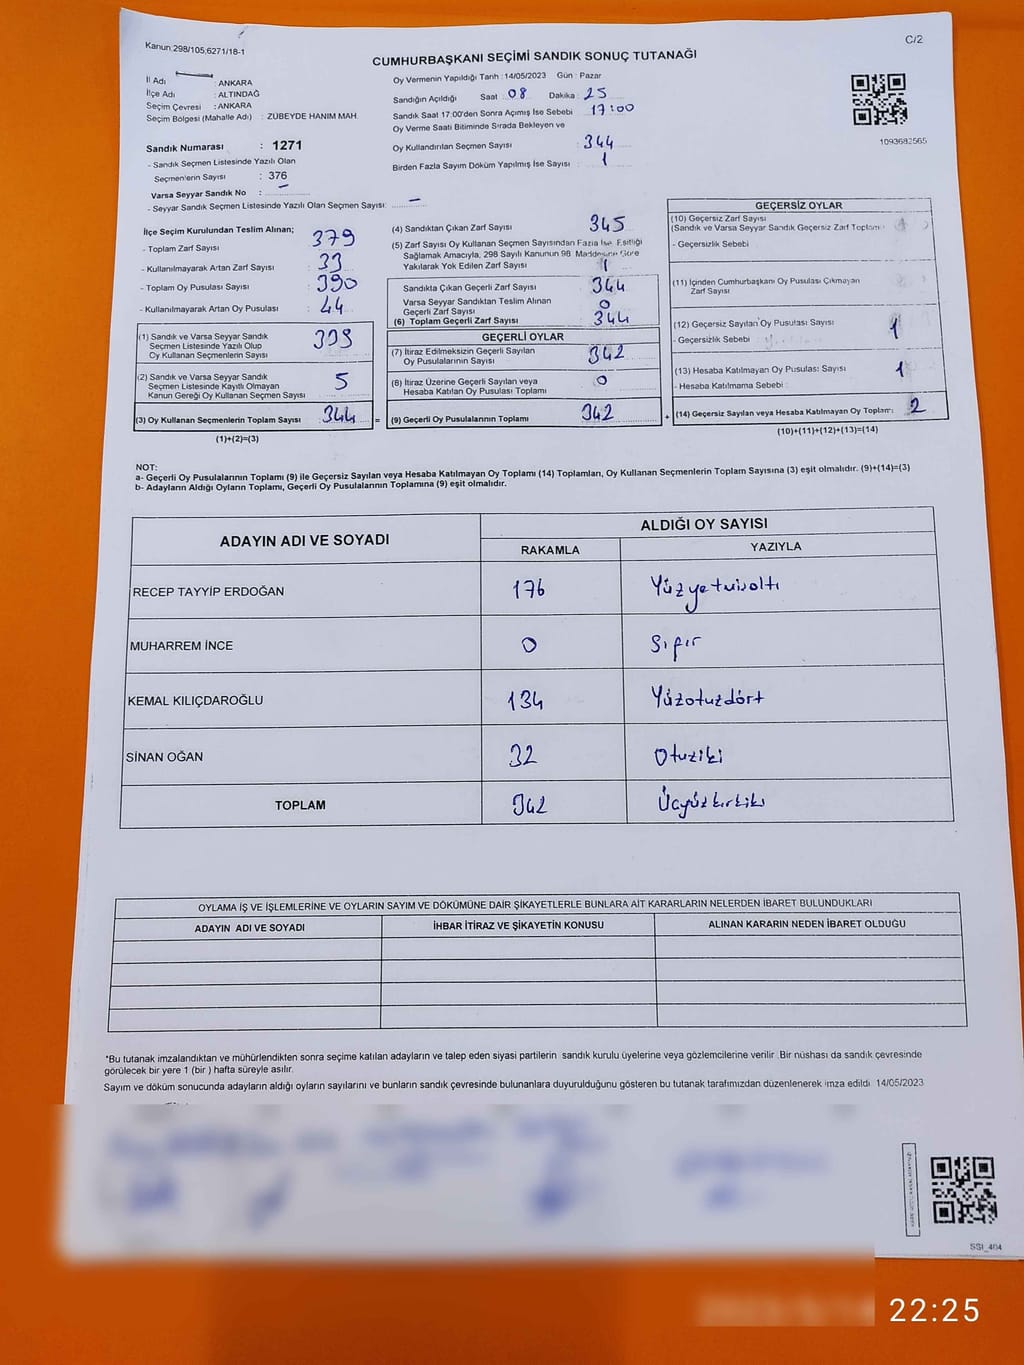 Kanun:298/105;6271/18-1
C/2
CUMHURBAŞKANI SEÇİMİ SANDIK SONUÇ TUTANAĞI
İl Adı : ANKARA
İlçe Adı : ALTINDAĞ
Seçim Çevresi : ANKARA
Seçim Bölgesi (Mahalle Adı) : ZÜBEYDE HANIM MAH.
Sandık Numarası : 1271
- Sandık Seçmen Listesinde Yazılı Olan
Seçmenlerin Sayısı : 376
Varsa Seyyar Sandık No : -
- Seyyar Sandık Seçmen Listesinde Yazılı Olan Seçmen Sayısı: -
Oy Vermenin Yapıldığı Tarih : 14/05/2023 Gün : Pazar
Sandığın Açıldığı Saat : 08 Dakika : 25
Sandık Saat 17:00'den Sonra Açımış İse Sebebi : 17:00
Oy Verme Saati Bitiminde Sırada Bekleyen ve
Oy Kullandırılan Seçmen Sayısı : 344
Birden Fazla Sayım Döküm Yapılmış İse Sayısı : 1
1093682565
İlçe Seçim Kurulundan Teslim Alınan;
- Toplam Zarf Sayısı 379
- Kullanılmayarak Artan Zarf Sayısı 33
- Toplam Oy Pusulası Sayısı 390
- Kullanılmayarak Artan Oy Pusulası 44
(1) Sandık ve Varsa Seyyar Sandık
Seçmen Listesinde Yazılı Olup
Oy Kullanan Seçmenlerin Sayısı 339
(2) Sandık ve Varsa Seyyar Sandık
Seçmen Listesinde Kayıtlı Olmayan
Kanun Gereği Oy Kullanan Seçmen Sayısı 5
(3) Oy Kullanan Seçmenlerin Toplam Sayısı 344 =
(1)+(2)=(3)
(4) Sandıktan Çıkan Zarf Sayısı 345
(5) Zarf Sayısı Oy Kullanan Seçmen Sayısından Fazla İse, Eşitliği
Sağlamak Amacıyla, 298 Sayılı Kanunun 98. Maddesine Göre
Yakılarak Yok Edilen Zarf Sayısı 1
Sandıkta Çıkan Geçerli Zarf Sayısı 344
Varsa Seyyar Sandıktan Teslim Alınan
Geçerli Zarf Sayısı 0
(6) Toplam Geçerli Zarf Sayısı 344
GEÇERLİ OYLAR
(7) İtiraz Edilmeksizin Geçerli Sayılan
Oy Pusulalarının Sayısı 342
(8) İtiraz Üzerine Geçerli Sayılan veya
Hesaba Katılan Oy Pusulası Toplamı 0
(9) Geçerli Oy Pusulalarının Toplamı 342 +
GEÇERSİZ OYLAR
(10) Geçersiz Zarf Sayısı
(Sandık ve Varsa Seyyar Sandık Geçersiz Zarf Toplamı)
- Geçersizlik Sebebi :
(11) İçinden Cumhurbaşkanı Oy Pusulası Çıkmayan
Zarf Sayısı
(12) Geçersiz Sayılan Oy Pusulası Sayısı 1
- Geçersizlik Sebebi :
(13) Hesaba Katılmayan Oy Pusulası Sayısı 1
- Hesaba Katılmama Sebebi :
(14) Geçersiz Sayılan veya Hesaba Katılmayan Oy Toplamı 2
(10)+(11)+(12)+(13)=(14)
NOT:
a- Geçerli Oy Pusulalarının Toplamı (9) ile Geçersiz Sayılan veya Hesaba Katılmayan Oy Toplamı (14) Toplamları, Oy Kullanan Seçmenlerin Toplam Sayısına (3) eşit olmalıdır. (9)+(14)=(3)
b- Adayların Aldığı Oyların Toplamı, Geçerli Oy Pusulalarının Toplamına (9) eşit olmalıdır.
ADAYIN ADI VE SOYADI ALDIĞI OY SAYISI
RAKAMLA YAZIYLA
RECEP TAYYİP ERDOĞAN 176 Yüzyetmişaltı
MUHARREM İNCE 0 Sıfır
KEMAL KILIÇDAROĞLU 134 Yüzotuzdört
SİNAN OĞAN 32 Otuziki
TOPLAM 342 Üçyüzkırkiki
OYLAMA İŞ VE İŞLEMLERİNE VE OYLARIN SAYIM VE DÖKÜMÜNE DAİR ŞİKAYETLERLE BUNLARA AİT KARARLARIN NELERDEN İBARET BULUNDUKLARI
ADAYIN ADI VE SOYADI İHBAR İTİRAZ VE ŞİKAYETİN KONUSU ALINAN KARARIN NEDEN İBARET OLDUĞU
*Bu tutanak imzalandıktan ve mühürlendikten sonra seçime katılan adayların ve talep eden siyasi partilerin sandık kurulu üyelerine veya gözlemcilerine verilir. Bir nüshası da sandık çevresinde
görülecek bir yere 1 (bir) hafta süreyle asılır.
Sayım ve döküm sonucunda adayların aldığı oyların sayılarını ve bunların sandık çevresinde bulunanlara duyurulduğunu gösteren bu tutanak tarafımızdan düzenlenerek imza edildi 14/05/2023
SSI_404
22:25